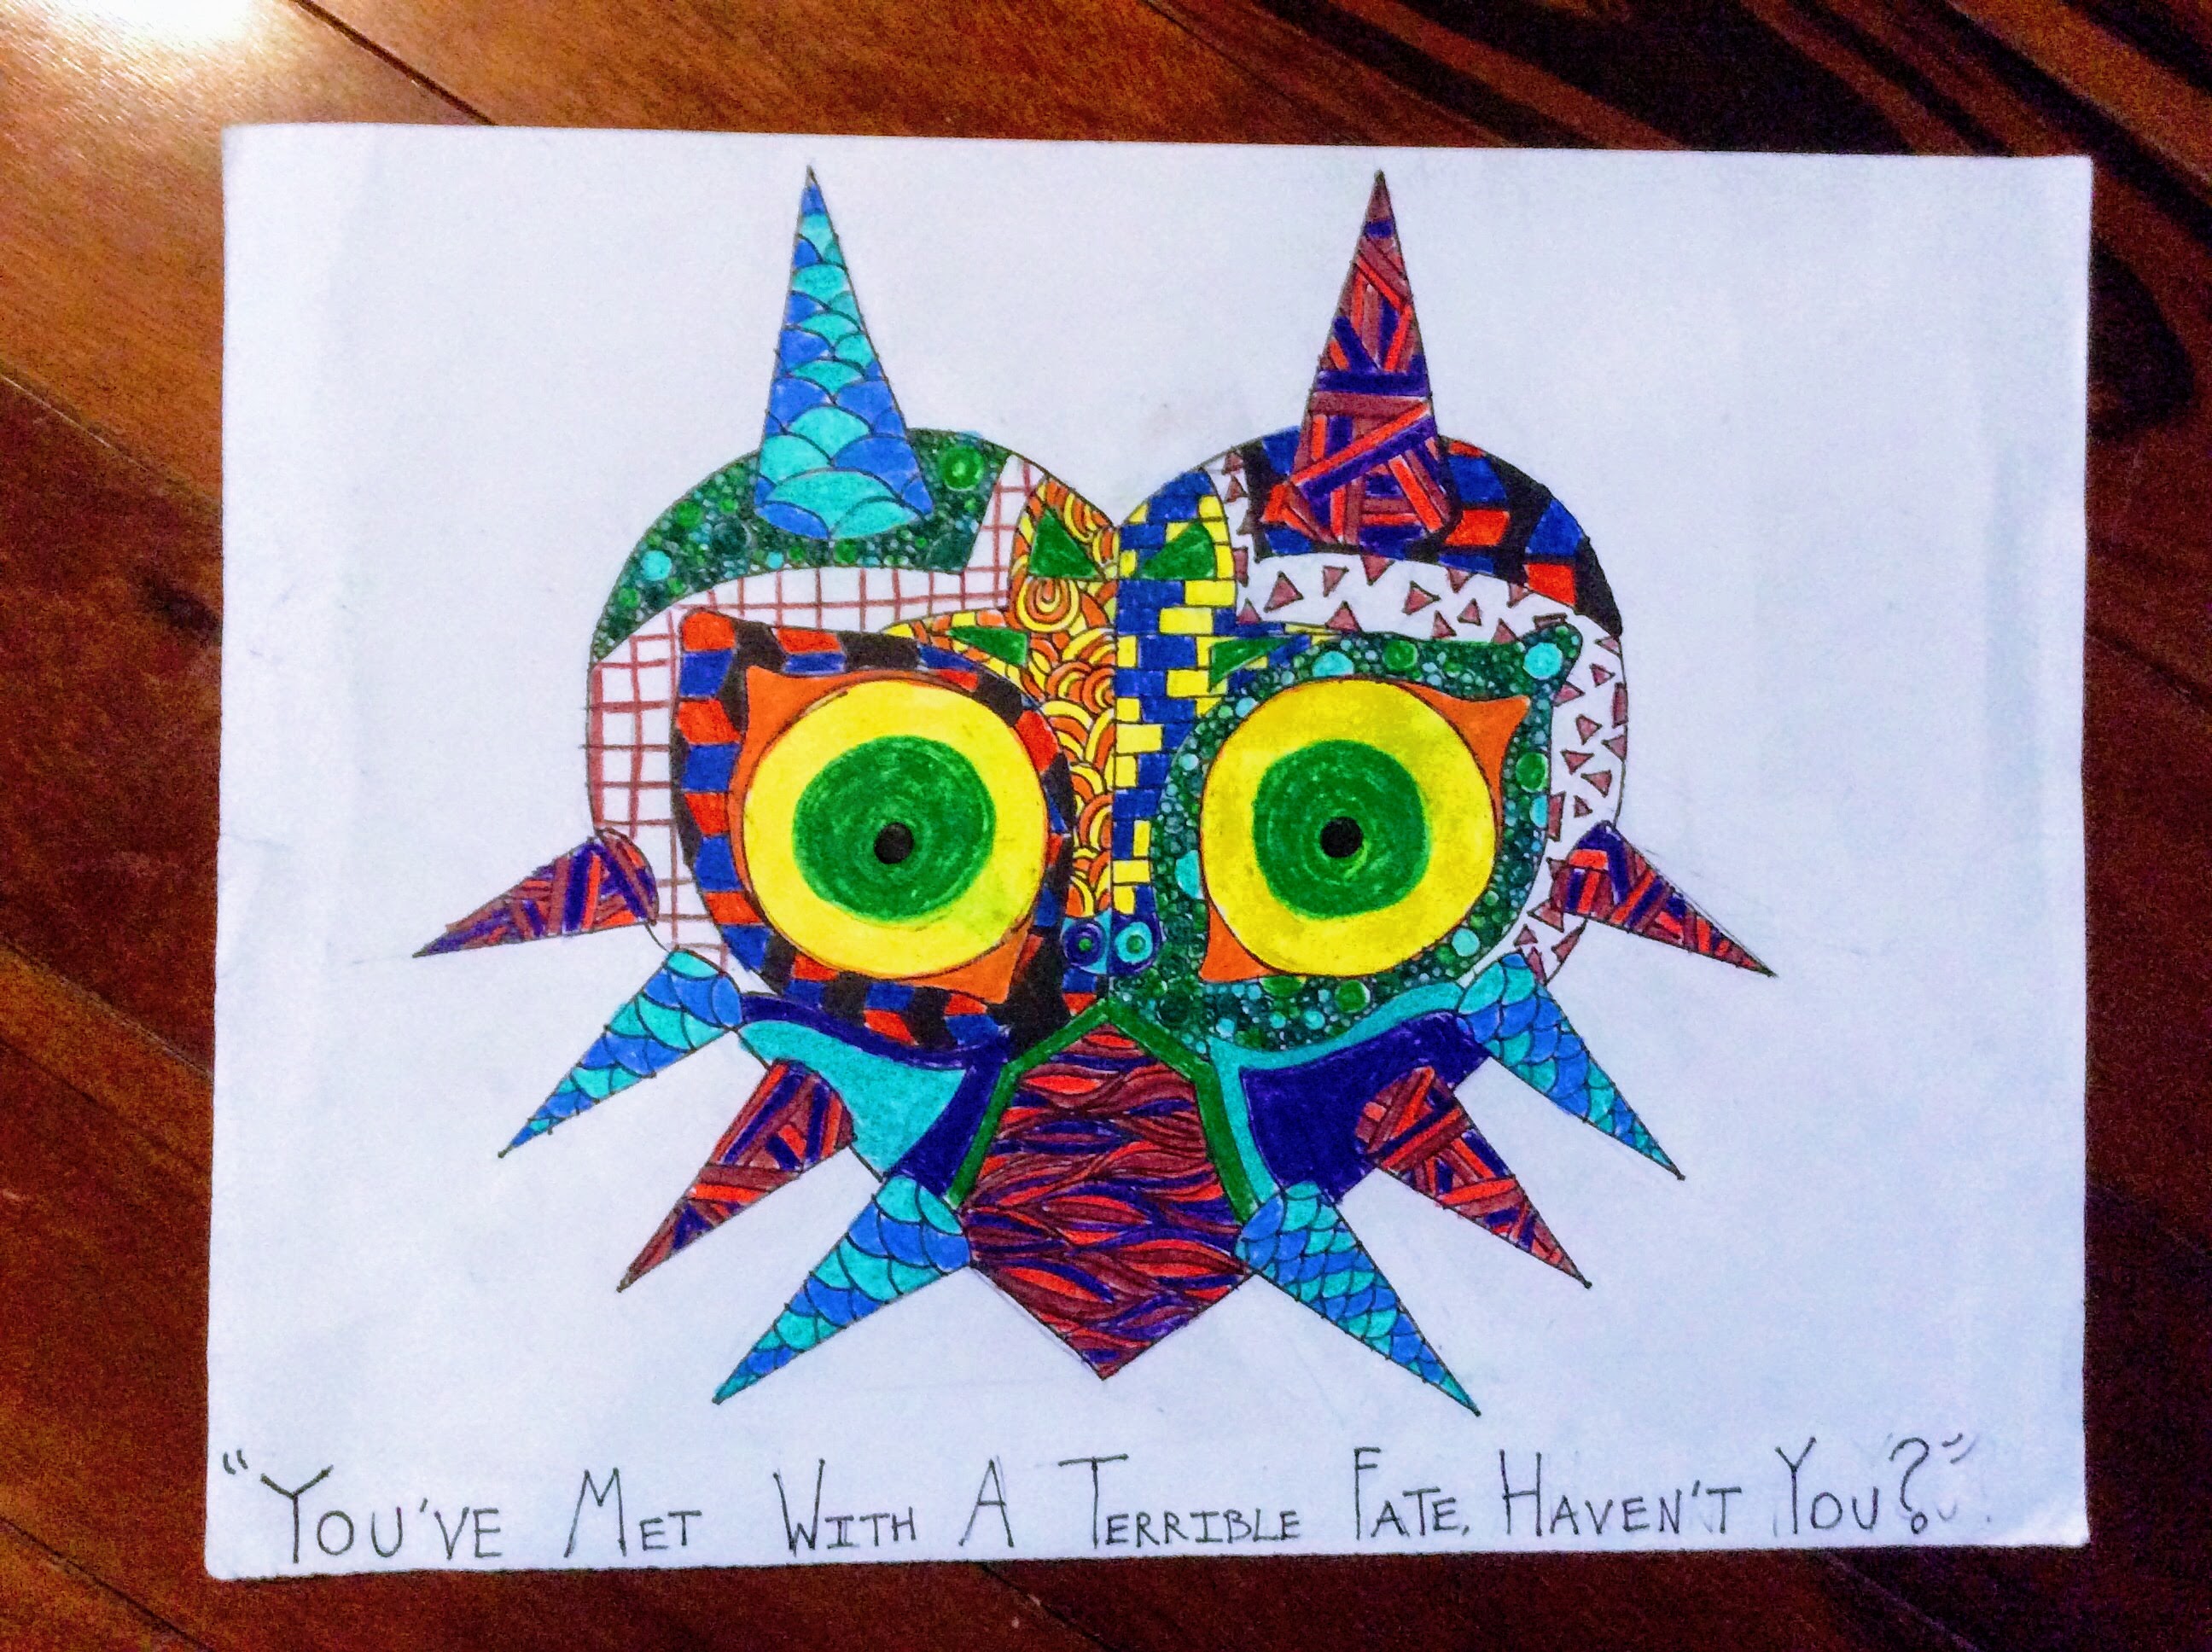 "You've Met With A Terrible Fate, Haven't You?"